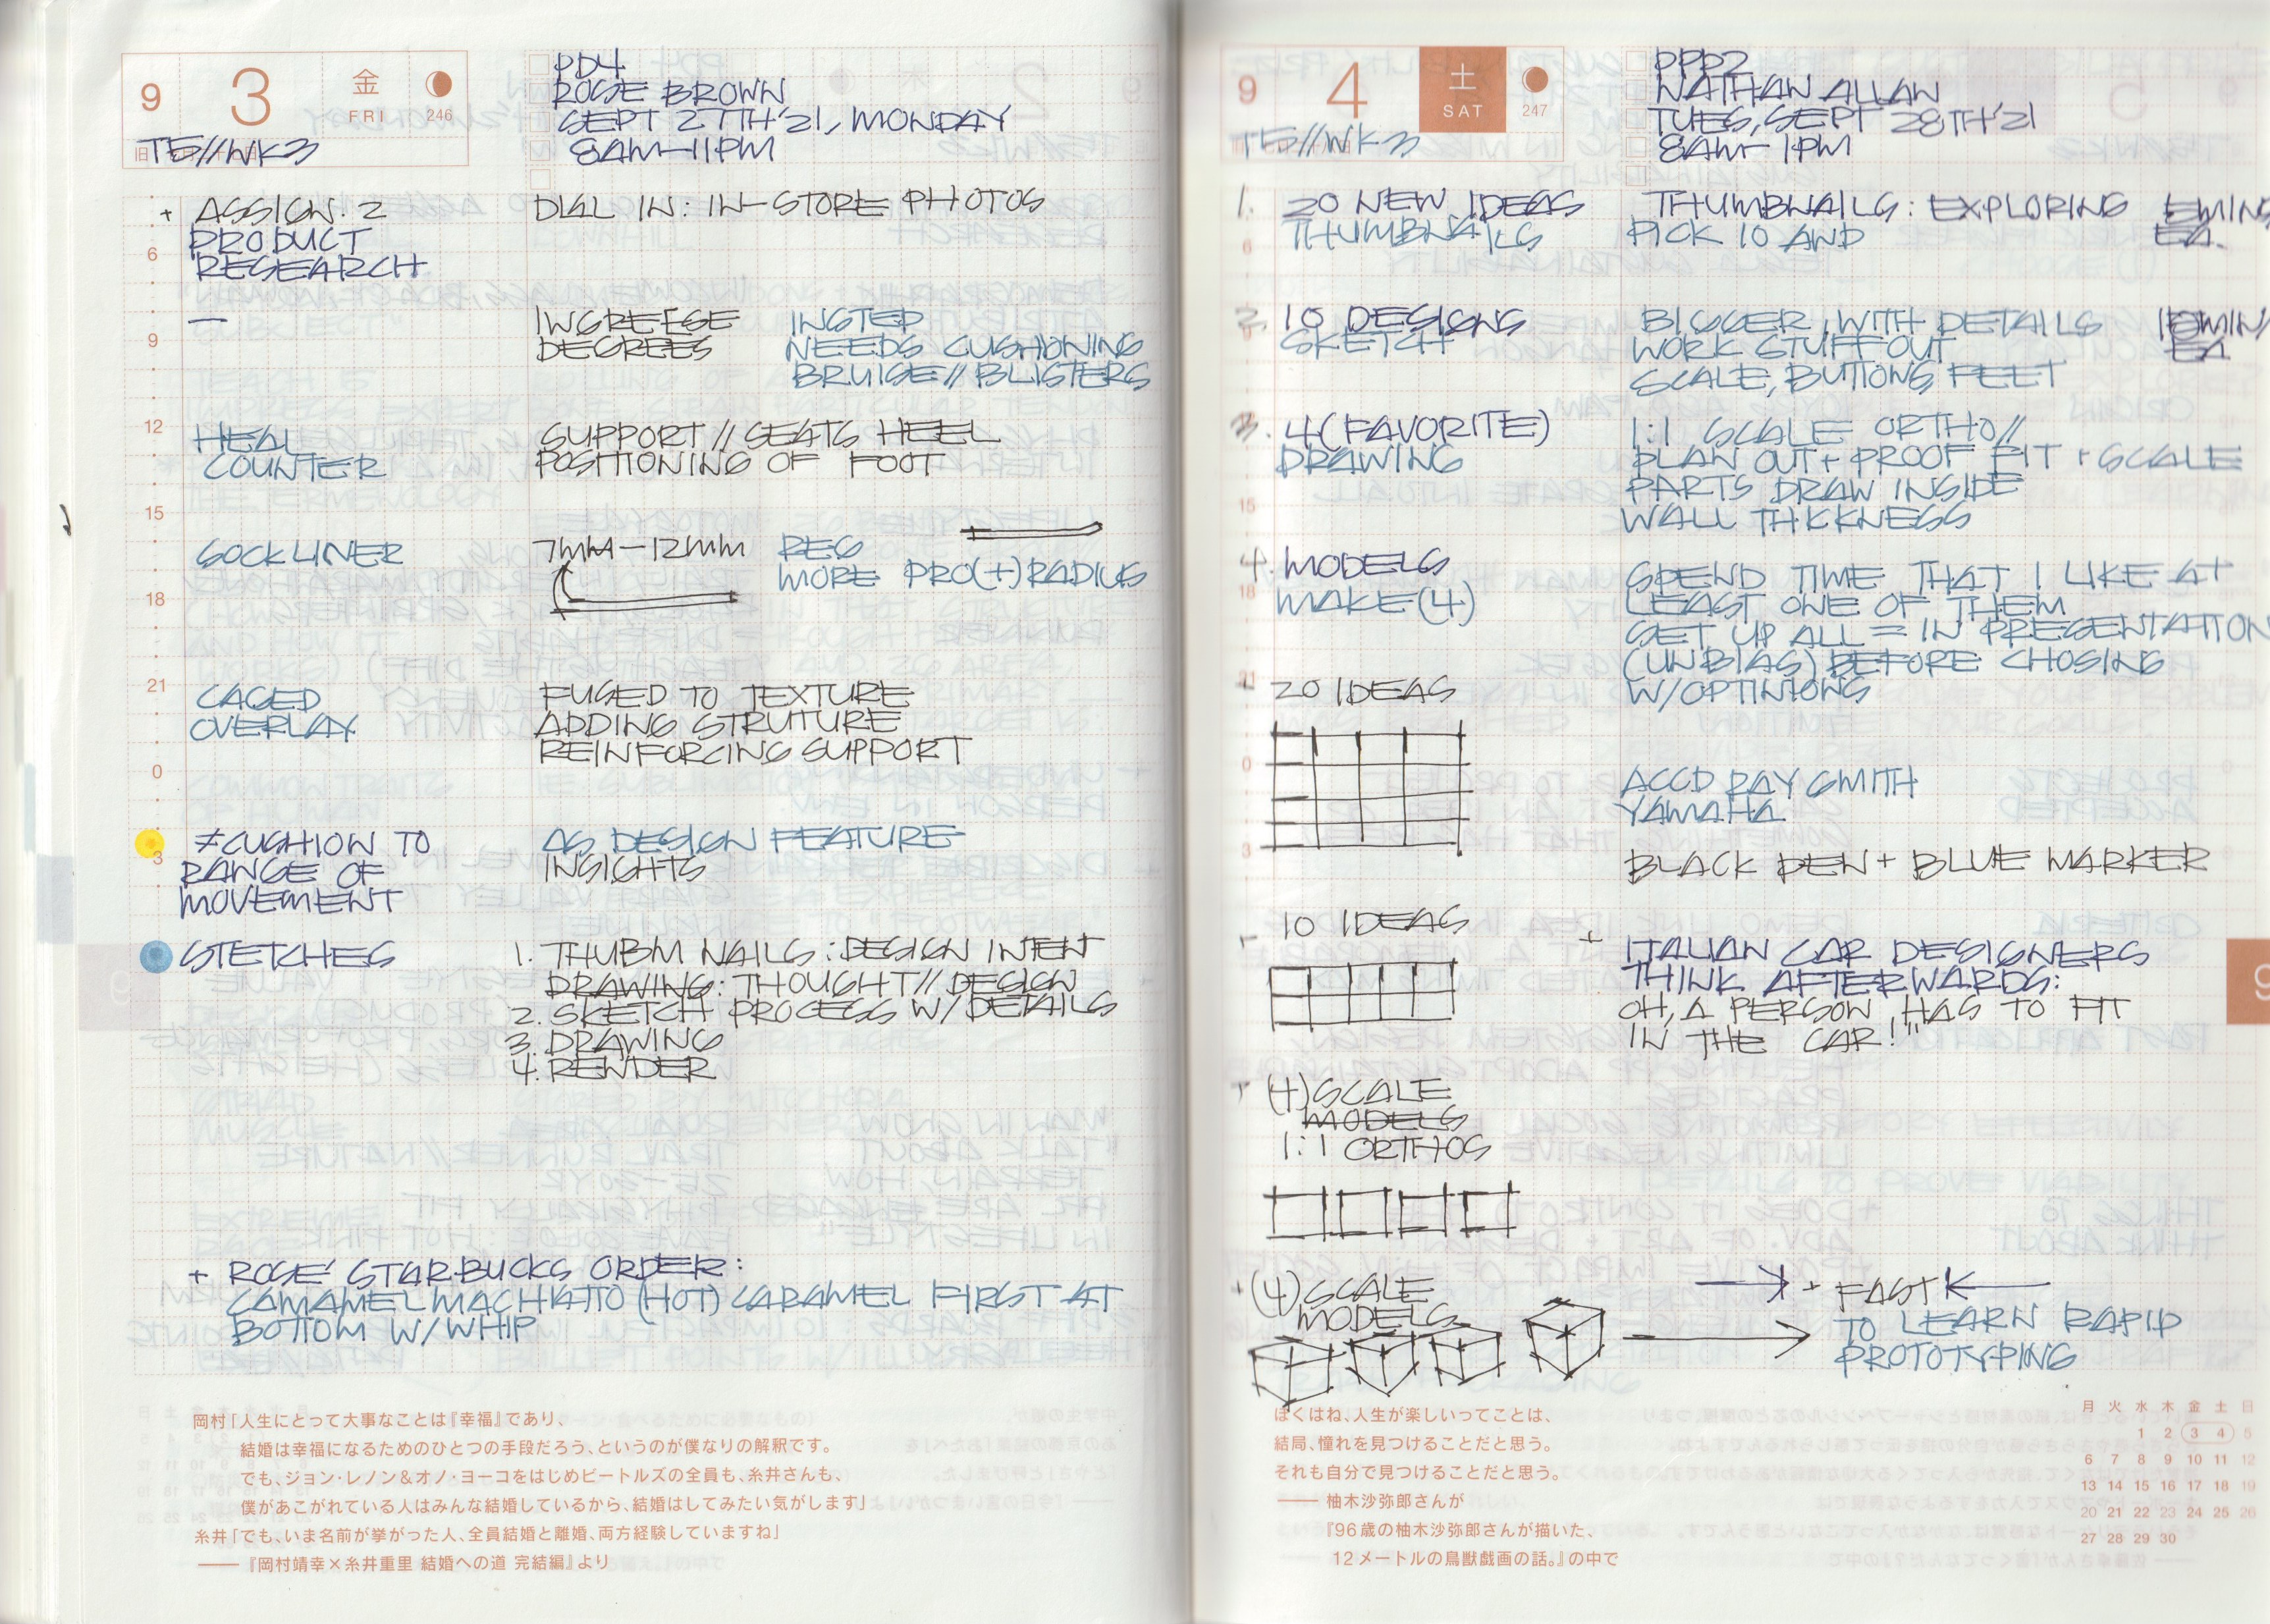 9
3
金
FRI
246
T5//WK3
PD4
ROSE BROWN
SEPT 27TH'21, MONDAY
8AM-11PM
+ ASSIGN. 2
PRODUCT
RESEARCH
DIAL IN: IN-STORE PHOTOS
6
9
12
15
18
21
0
3
—
INGREESE
DEGREES
INSTED
NEEDS CUSHIONING
BRUISE // BLISTERS
HEAL
COUNTER
SUPPORT // SEATS HEEL
POSITIONING OF FOOT
SOCKLINER
7MM-12MM
REG
MORE PRO(+) RADIUS
CAGED
OVERLAY
FUSED TO TEXTURE
ADDING STRUTURE
REINFORCING SUPPORT
≠CUSHION TO
RANGE OF
MOVEMENT
AS DESIGN FEATURE
INSIGHTS
STETCHES
1. THUBM NAILS: DESIGN INTENT
DRAWING: THOUGHT // DESIGN
2. SKETCH PROCESS W/ DETAILS
3. DRAWING
4. RENDER
+ ROSE' STARBUCKS ORDER:
CAMAMEL MACHIATTO (HOT) CARAMEL FIRST AT
BOTTOM W/ WHIP
岡村「人生にとって大事なことは『幸福』であり、
結婚は幸福になるためのひとつの手段だろう、というのが僕なりの解釈です。
でも、ジョン・レノン＆オノ・ヨーコをはじめビートルズの全員も、糸井さんも、
僕があこがれている人はみんな結婚しているから、結婚はしてみたい気がします」
糸井「でも、いま名前が挙がった人、全員結婚と離婚、両方経験していますね」
——『岡村靖幸×糸井重里 結婚への道 完結編』より
9
4
土
SAT
247
T5//WK3
PPD2
NATHAN ALLAN
TUES, SEPT 28TH'21
8AM-1PM
1. 20 NEW IDEAS
THUMBNAILS
THUMBNAILS: EXPLORING
PICK 10 AND
5MINS
EA.
2. 10 DESIGNS
SKETCH
BIGGER, WITH DETAILS
WORK STUFF OUT
SCALE, BUTTONS FEET
EA
3. 4 (FAVORITE)
DRAWING
1:1 SCALE ORTHO//
PLAN OUT + PROOF FIT + SCALE
PARTS DRAW INSIDE
WALL THKKNESS
4. MODELS
MAKE (4)
SPEND TIME THAT I LIKE AT
LEAST ONE OF THEM
SET UP ALL = IN PRESENTATION
(UNBIAS) BEFORE CHOSING
W/OPTINIONS
6
9
15
18
21
0
3
20 IDEAS
ACCD RAY SMITH
YAMAHA
BLACK PEN + BLUE MARKER
10 IDEAS
+ ITALIAN CAR DESIGNERS
THINK AFTERWARDS:
OH, A PERSON HAS TO FIT
IN THE CAR!"
(4) SCALE
MODELS
1:1 ORTHOS
+ (4) SCALE
MODELS
+ FAST
TO LEARN RAPID
PROTOTYPING
9
ぼくはね、人生が楽しいってことは、
結局、憧れを見つけることだと思う。
それも自分で見つけることだと思う。
—— 柚木沙弥郎さんが
『96歳の柚木沙弥郎さんが描いた、
12メートルの鳥獣戯画の話。』の中で
月 火 水 木 金 土 日
1 2 3 4 5
6 7 8 9 10 11 12
13 14 15 16 17 18 19
20 21 22 23 24 25 26
27 28 29 30